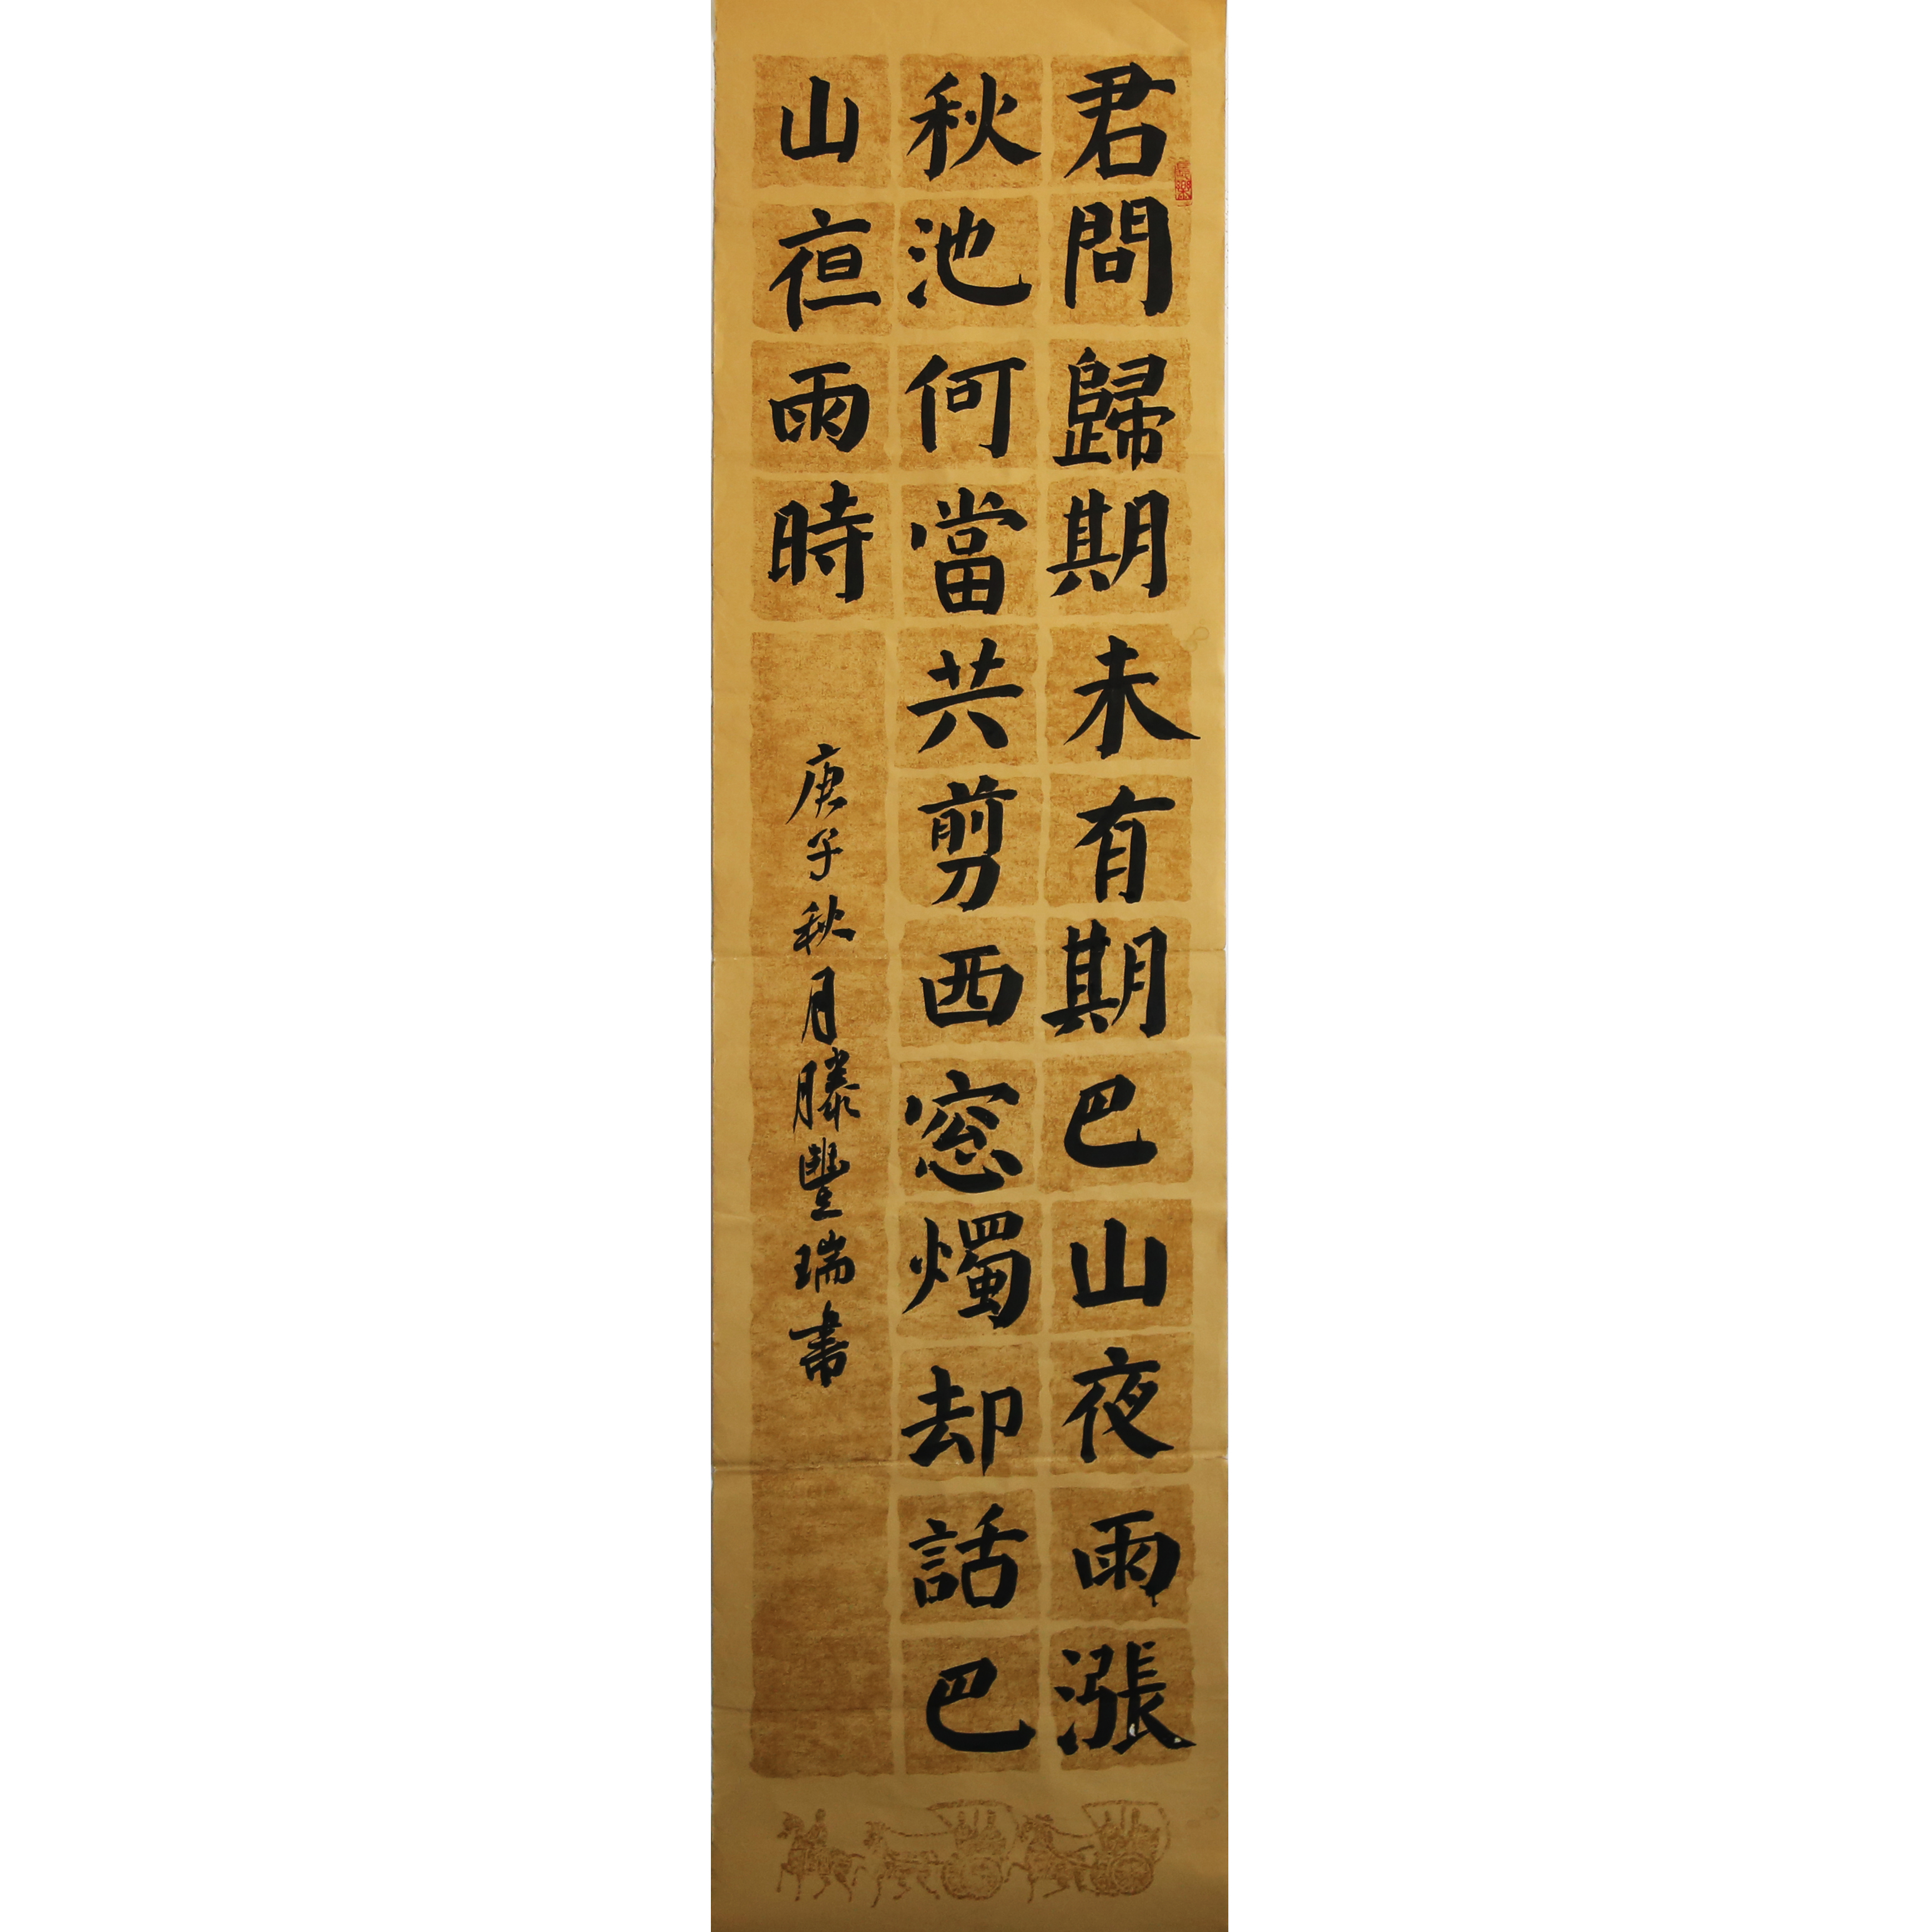 君問歸期未有期巴山夜雨漲
秋池何當共剪西窓燭却話巴
山夜雨時
庚子秋月滕豐瑞書